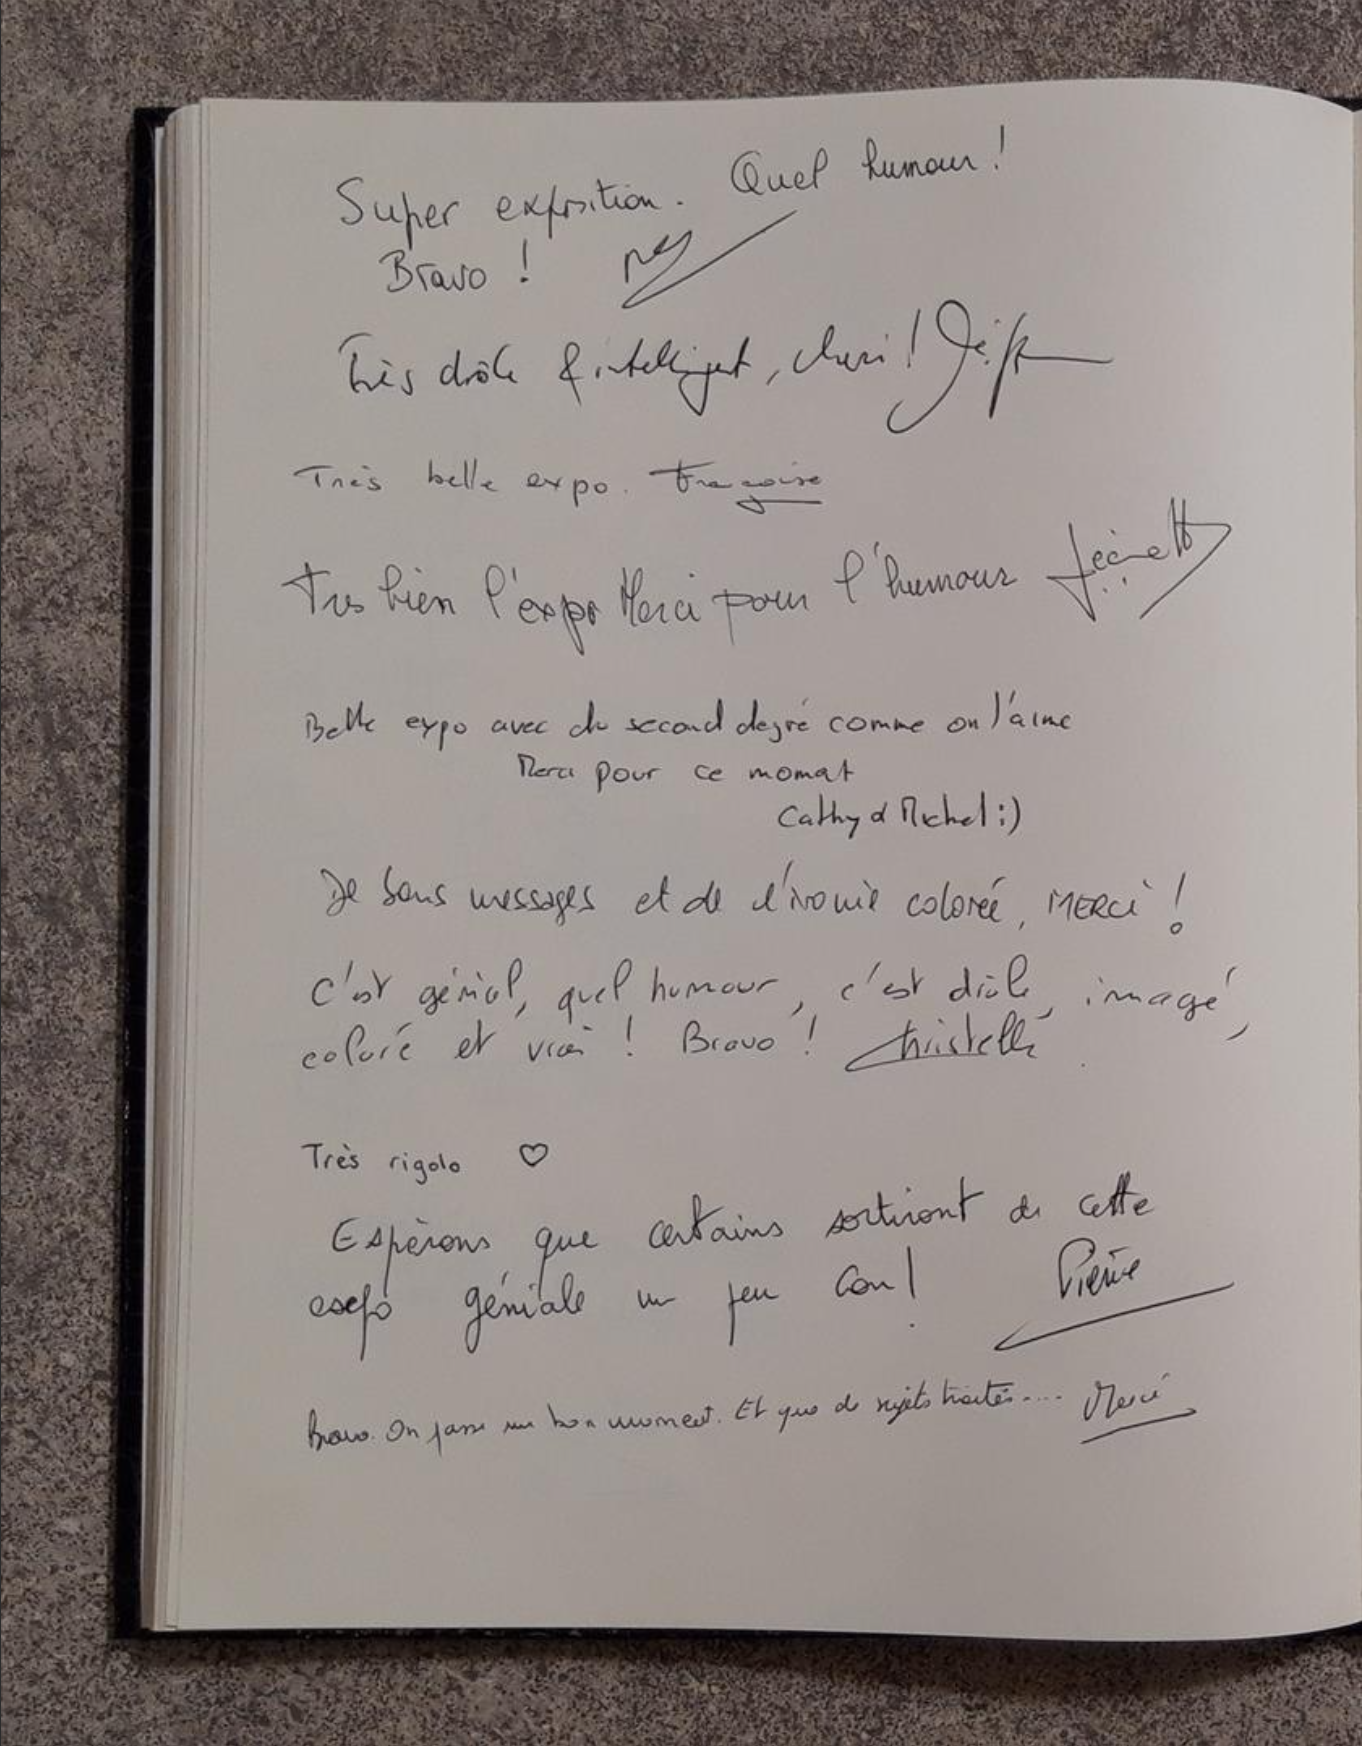 Super exposition. Quel humour !
Bravo !
Très drôle & intelligent, !
Très belle expo. Françoise
Tres bien l'expo Merci pour l'humour
Belle expo avec du second degré comme on l'aime
Merci pour ce moment
Cathy & Michel :)
De bons messages et de l'ironie colorée, MERCI !
C'est génial, quel humour, c'est drôle, imagé,
coloré et vrai ! Bravo ! Christelle
Très rigolo ♡
Espérons que certains sortiront de cette
expo géniale un peu con ! Pierre
Bravo. On passe un bon moment. Et que de sujets traités.... Merci